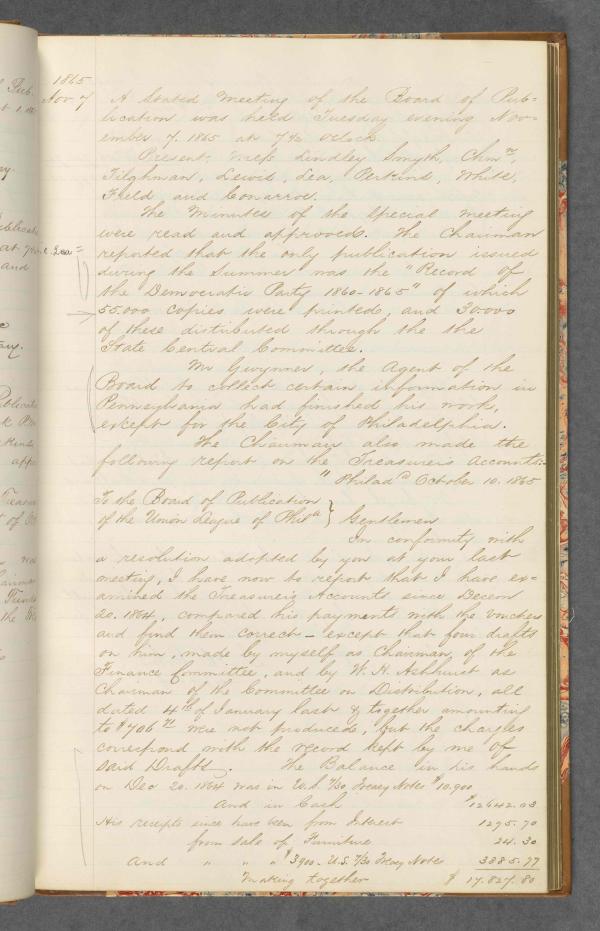 1865
Nov 7 A Stated Meeting of the Board of Pub=
lication was held Tuesday evening Nov=
ember 7. 1865 at 7½ oclock.
Present, Mess Lindley Smyth, Chmn,
Tilghman, Lewis, Lea, Perkins, White,
Field and Conarroe.
The Minutes of the Special meeting
were read and approved. The Chairman
reported that the only publication issued
during the Summer was the "Record of
the Democratic Party 1860-1865" of which
55.000 copies were printed, and 30.000
of these distributed through the the
State Central Committee.
Mr Gwynner, the Agent of the
Board to collect certain information in
Pennsylvania had finished his work,
except for the City of Philadelphia.
The Chairman also made the
following report on the Treasurers Accounts:-
" Philada October 10. 1865
To the Board of Publication
of the Union League of Phila } Gentlemen
In conformity with
a resolution adopted by you at your last
meeting, I have now to report that I have ex=
amined the Treasurers Accounts since Decem
20. 1864, compared his payments with the vouchers
and find them correct – except that four drafts
on him, made by myself as Chairman, of the
Finance Committee, and by W. H. Ashhurst as
Chairman of the Committee on Distribution, all
dated 4th of January last & together amounting
to $706 were not produced, but the charges
correspond with the record kept by me of
said Drafts. The Balance in his hands
on Dec 20. 1864 was in U.S. 7/30 Treasy Notes $10.900
And in Cash $12642.03
His receipts since have been from Interest 1295.70
from sale of Furniture 24.30
And " " " $3900- U.S. 7/30 Treasy Notes 3885.77
Making together $ 17.827.80